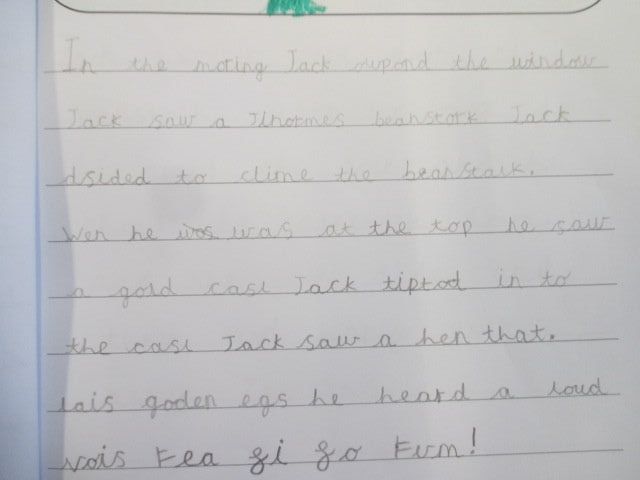 In the moring Jack oupond the window
Jack saw a Jlnormes beanstork Jack
dsided to clime the beanstalk.
Wen he was at the top he saw
a gold casl Jack tiptod in to
the casl Jack saw a hen that.
lais goden egs he heard a loud
nois Fea fi fo Fum!